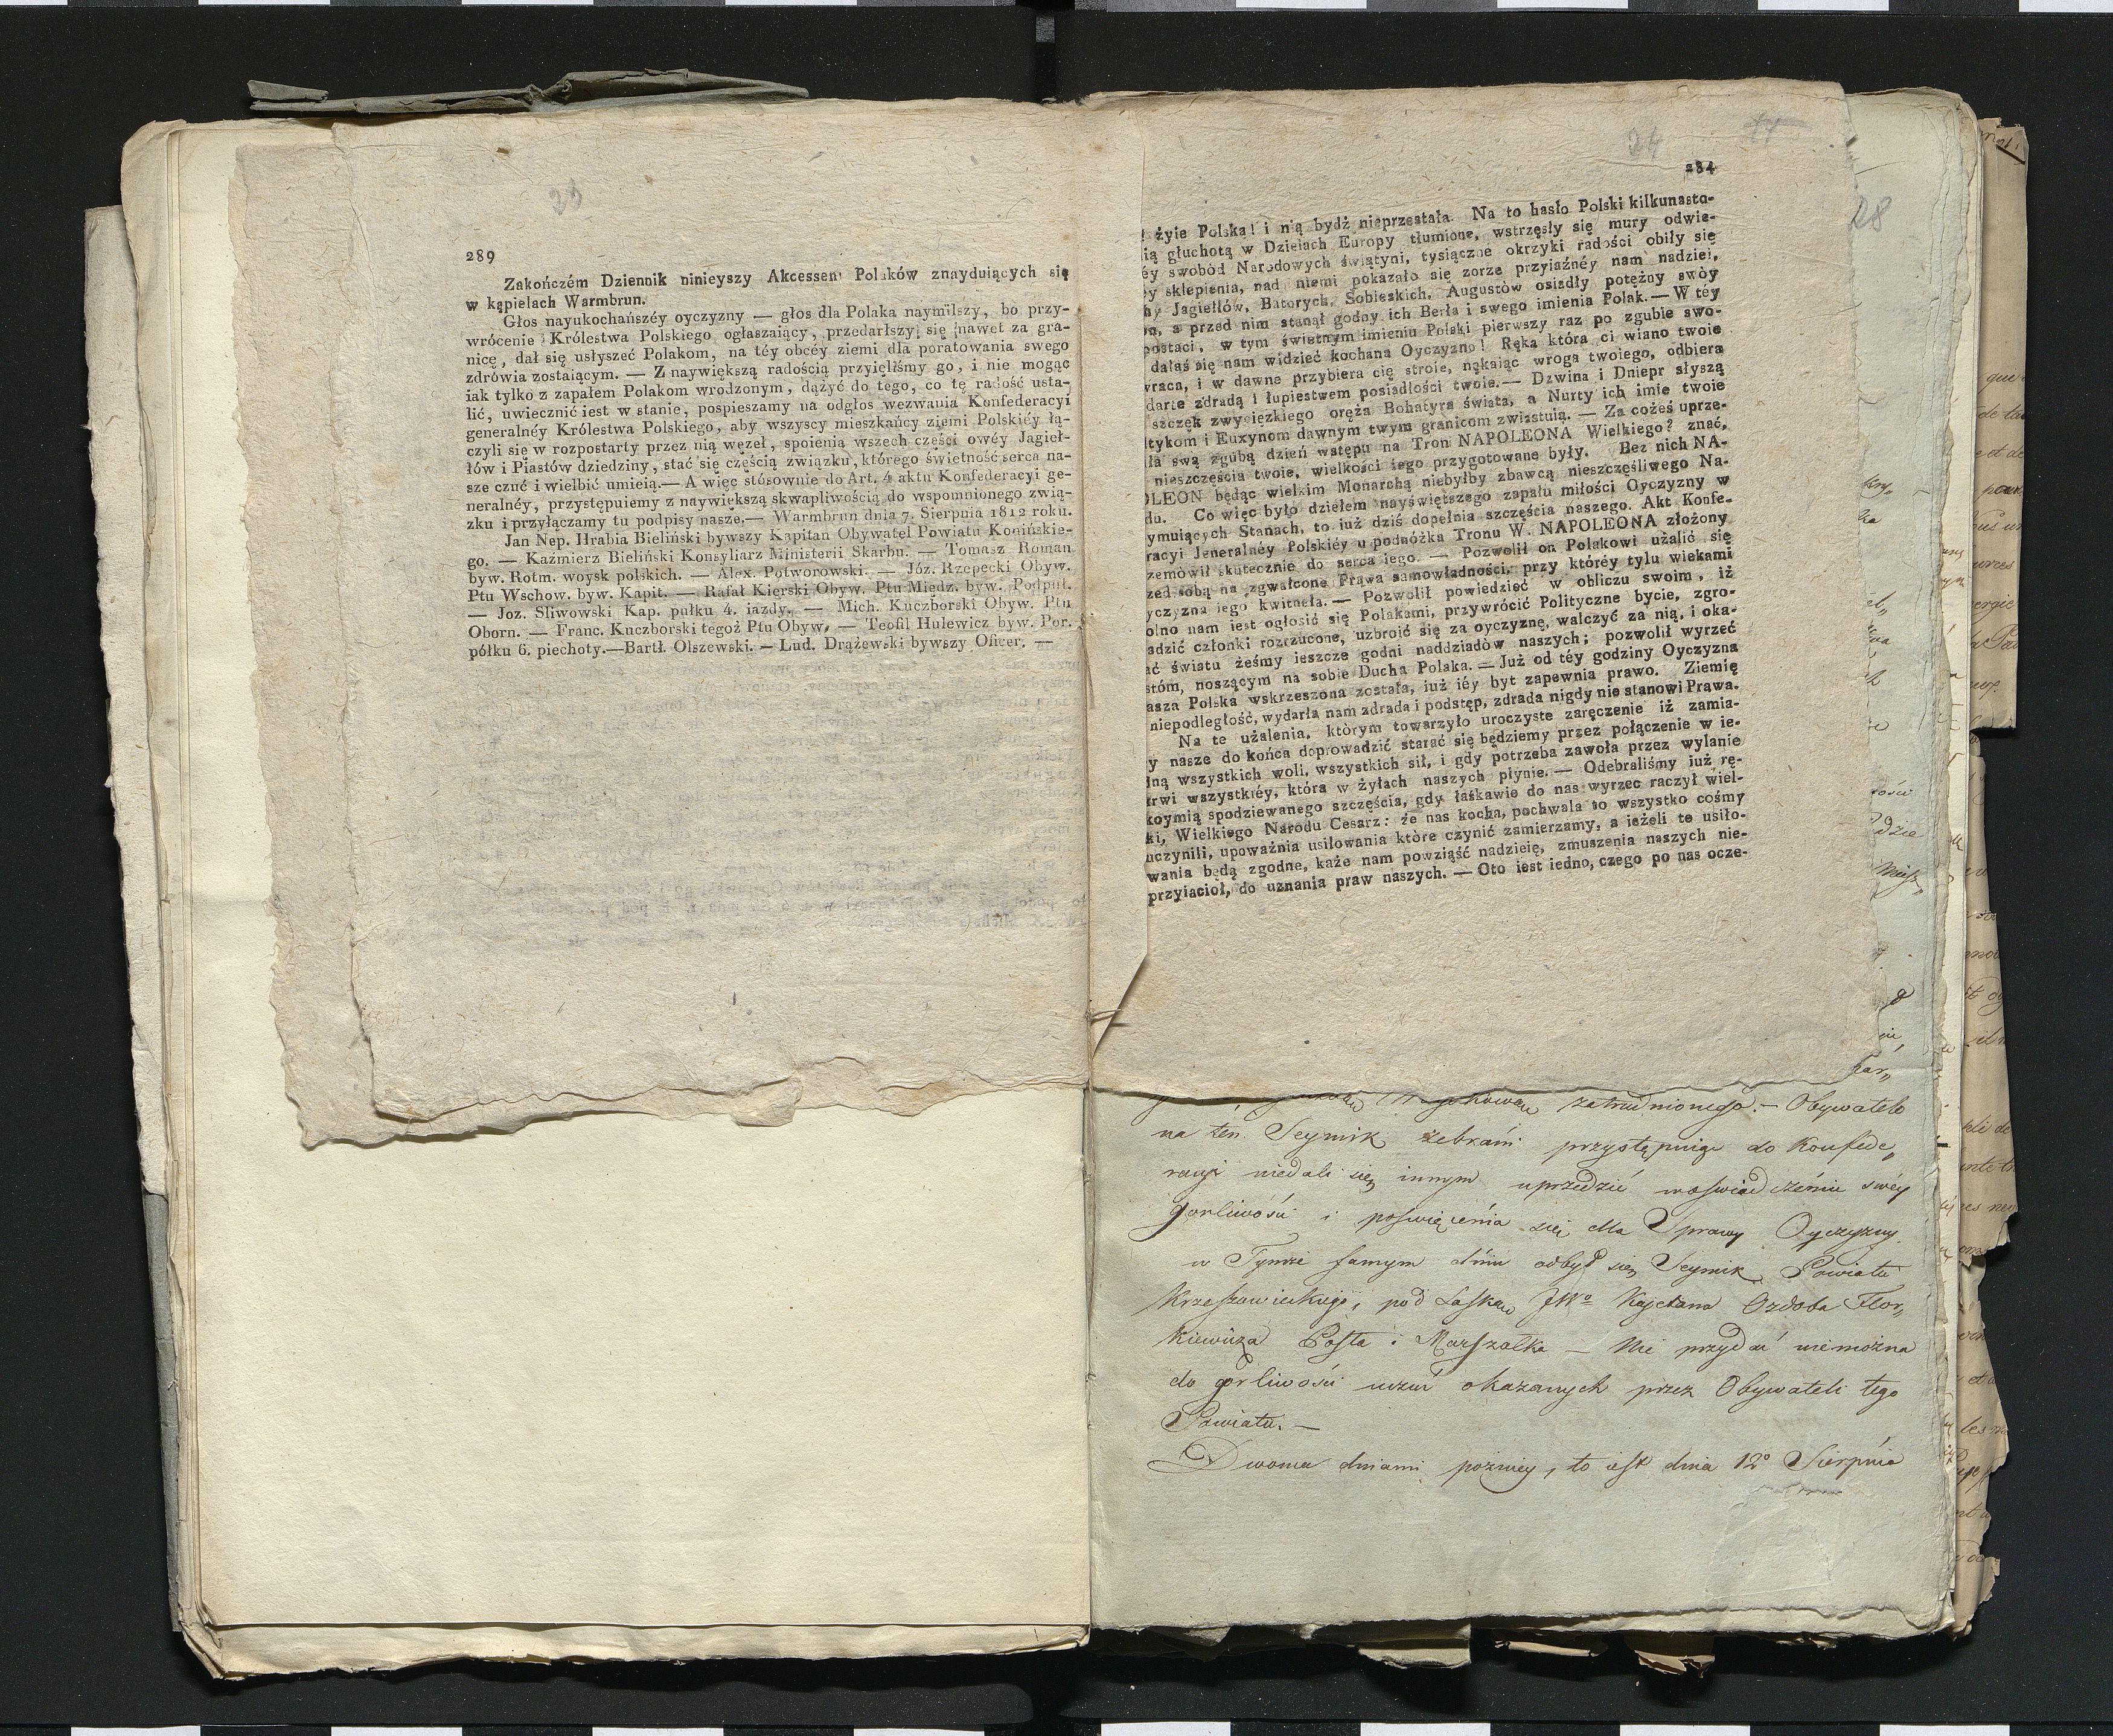 23
289
Zakończém Dziennik ninieyszy Akcessem Polaków znayduiących się
w kąpielach Warmbrun.
Głos nayukochańszéy oyczyzny — głos dla Polaka naymilszy, bo przy-
wrócenie Królestwa Polskiego ogłaszaiący, przedarłszy się nawet za gra-
nicę, dał się usłyszeć Polakom, na téy obcéy ziemi dla poratowania swego
zdrówia zostaiącym. — Z naywiększą radością przyięliśmy go, i nie mogąc
iak tylko z zapałem Polakom wrodzonym, dążyć do tego, co tę radość usta-
lić, uwiecznić iest w stanie, pospieszamy na odgłos wezwania Konfederacyi
generalnéy Królestwa Polskiego, aby wszyscy mieszkańcy ziemi Polskiéy łą-
czyli się w rozpostarty przez nią węzeł, spoienia wszech części owéy Jagieł-
łów i Piastów dziedziny, stać się częścią związku, którego świetność serca na-
sze czuć i wielbić umieią.— A więc stósownie do Art. 4 aktu Konfederacyi ge-
neralnéy, przystępuiemy z naywiększą skwapliwością do wspomnionego zwią-
zku i przyłączamy tu podpisy nasze,— Warmbrun dnia 7. Sierpnia 1812 roku.
Jan Nep. Hrabia Bieliński bywszy Kapitan Obywatel Powiatu Konińskie-
go. — Kaźmierz Bieliński Konsyliarz Ministerii Skarbu. — Tomasz Roman
byw. Rotm. woysk polskich. — Alex. Potworowski. — Józ. Rzepecki Obyw.
Ptu Wschow. byw. Kapit. — Rafał Kierski Obyw. Ptu Międz. byw. Podpuł.
— Joz. Sliwowski Kap. pułku 4. iazdy. — Mich. Kuczborski Obyw. Ptu
Oborn. — Franc. Kuczborski tegoż Ptu Obyw. — Teofil Hulewicz byw. Por.
półku 6. piechoty.—Bartł. Olszewski. — Lud. Drążewski bywszy Oficer. —
24
284
28
! żyie Polska! i nią bydź nieprzestała. Na to hasło Polski kilkunasto-
ią głuchotą w Dzieiach Europy tłumione, wstrzęsły się mury odwie-
éy swobód Narodowych świątyni, tysiączne okrzyki radości obiły się
éy sklepienia, nad niemi pokazało się zorze przyiaźnéy nam nadziei,
hy Jagiełłów, Batorych, Sobieskich, Augustów osiadły potężny swóy
on, a przed nim stanął godny ich Berła i swego imienia Polak.— W téy
postaci, w tym świetnym imieniu Polski pierwszy raz po zgubie swo-
dałaś się nam widzieć kochana Oyczyzno! Ręka która ci wiano twoie
wraca, i w dawne przybiera cię stroie, nękaiąc wroga twoiego, odbiera
darte zdradą i łupiestwem posiadłości twoie.— Dzwina i Dniepr słyszą
szczęk zwycięzkiego oręża Bohatyra świata, a Nurty ich imie twoie
ltykom i Euxynom dawnym twym granicom zwiastuią. — Za cożeś uprze-
iła swą zgubą dzień wstępu na Tron NAPOLEONA Wielkiego? znać,
nieszczęścia twoie, wielkości iego przygotowane były. Bez nich NA-
OLEON będąc wielkim Monarchą niebyłby zbawcą nieszczęśliwego Na-
du. Co więc było dziełem nayświętszego zapału miłości Oyczyzny w
ymuiących Stanach, to iuż dziś dopełnia szczęścia naszego. Akt Konfe-
racyi Jeneralnéy Polskiéy u podnóżka Tronu W. NAPOLEONA złożony
zemówił skutecznie do serca iego. — Pozwolił on Polakowi użalić się
zed sobą na zgwałcone Prawa samowładności, przy któréy tylu wiekami
yczyzna iego kwitnęła. — Pozwolił powiedzieć w obliczu swoim, iż
olno nam iest ogłosić się Polakami, przywrócić Polityczne bycie, zgro-
adzić członki rozrzucone, uzbroić się za oyczyznę, walczyć za nią, i oka-
ać światu żeśmy ieszcze godni naddziadów naszych; pozwolił wyrzeć
stóm, noszącym na sobie Ducha Polaka. — Już od téy godziny Oyczyzna
asza Polska wskrzeszona została, iuż iéy byt zapewnia prawo. Ziemię
niepodległość, wydarła nam zdrada i podstęp, zdrada nigdy nie stanowi Prawa.
Na te użalenia, którym towarzyło uroczyste zaręczenie iż zamia-
y nasze do końca doprowadzić starać się będziemy przez połączenie w ie-
dną wszystkich woli, wszystkich sił, i gdy potrzeba zawoła przez wylanie
krwi wszystkiéy, która w żyłach naszych płynie. — Odebraliśmy iuż rę-
koymią spodziewanego szczęścia, gdy łaskawie do nas wyrzec raczył wiel-
ki, Wielkiego Narodu Cesarz: że nas kocha, pochwala to wszystko cośmy
uczynili, upoważnia usiłowania które czynić zamierzamy, a ieżeli te usiło-
wania będą zgodne, każe nam powziąść nadzieię, zmuszenia naszych nie-
przyiacioł, do uznania praw naszych. — Oto iest iedno, czego po nas ocze-
zatrudnionego. — Obywatele
na ten Seymik zebrani przystępuiąc do Konfede„
racyi niedali się innym uprzedzić w oświadczeniu swéy
gorliwości i poswięcenia się dla Sprawy Oyczyzny.
w Tymże samym dniu odbył się Seymik Powiatu
Krzeszowickiego, pod Laską JWo Kajetana Ozdoba Flor„
kiewicza Posła i Marszałka — Nic przydać niemożna
do gorliwości uczuć okazanych przez Obywateli tego
Powiatu. —
Dwoma dniami pozniey, to iest dnia 12o Sierpnia